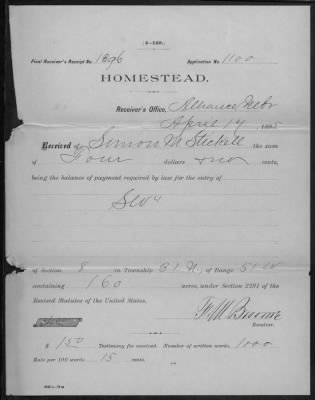 (4—140.)
Final Receiver's Receipt No. 1896 Application No. 1100
HOMESTEAD.
Receiver's Office, Alliance Nebr
April 14, 1895
Received of Simon M Stickell the sum
of Four dollars & no cents,
being the balance of payment required by law for the entry of
SW 4
of Section 8 in Township 31 N, of Range 51 W
containing 160 acres, under Section 2291 of the
Revised Statutes of the United States.
F. M. Broome
Receiver.
$ 1.50 Testimony fee received. Number of written words, 1000
Rate per 100 words 15 cents.